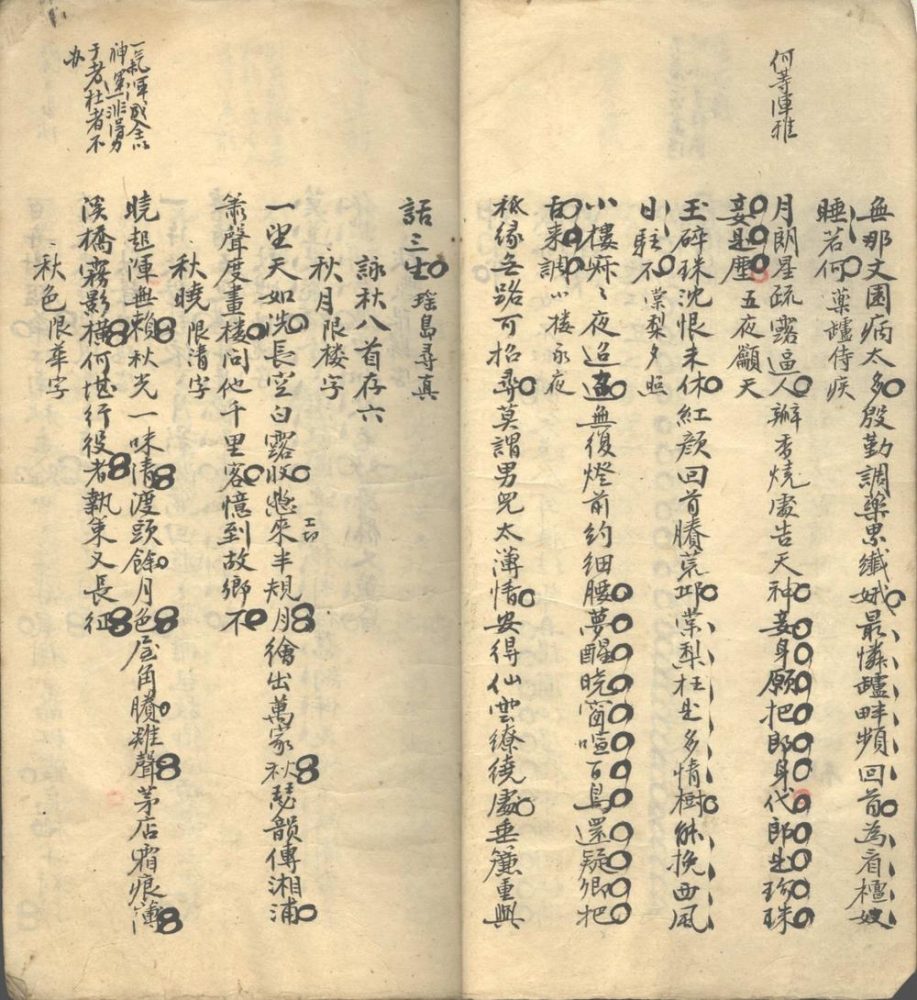 何等庄雅
無那文園病太多殷勤調藥累纖娥最憐爐畔頻回首為看檀奴
睡若何 藥罏侍疾
月朗星疏露逼人瓣香燒處告天神妾身願把郎身代郎是珍珠
妾是塵 五夜籲天
玉碎珠沈恨未休紅顏回首賸荒邱棠梨枉是多情樹能挽西風
日駐不 棠梨夕照
小樓寂〻夜迢遥無復燈前約細腰夢醒曉窗喧百鳥還疑卿把
舌來調 小楼永夜
祗緣無路可招尋莫謂男兒太薄情安得仙雲繚繞處垂簾重與
話三生 瑤島尋真
詠秋八首存六
秋月限楼字
一望天如洗長空白露收悬來半規月繪出萬家秋琴韻傳湘浦
簫聲度畫楼问他千里客憶到故鄉不
工切
秋曉限清字
曉起渾無賴秋光一味清渡頭餘月色屋角賸雞聲茅店霜痕薄
溪橋霧影橫何堪行役者執束又長征
秋色限華字
一氣渾成全以
神運非得力
于老杜者不
办